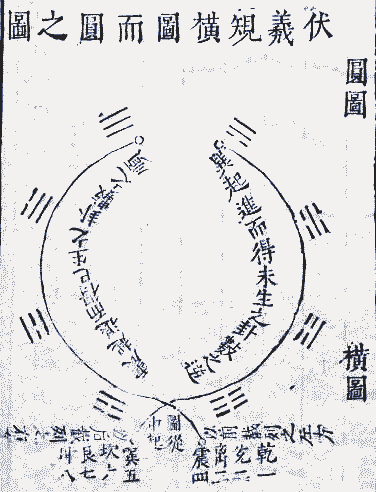 伏羲規橫圖而圓之圖
圓圖
巽起進而得未生之卦數之逆
震起退而得已生之卦數之順
橫圖
圖從中起
乾一
兌二
離三
震四
巽五
坎六
艮七
坤八